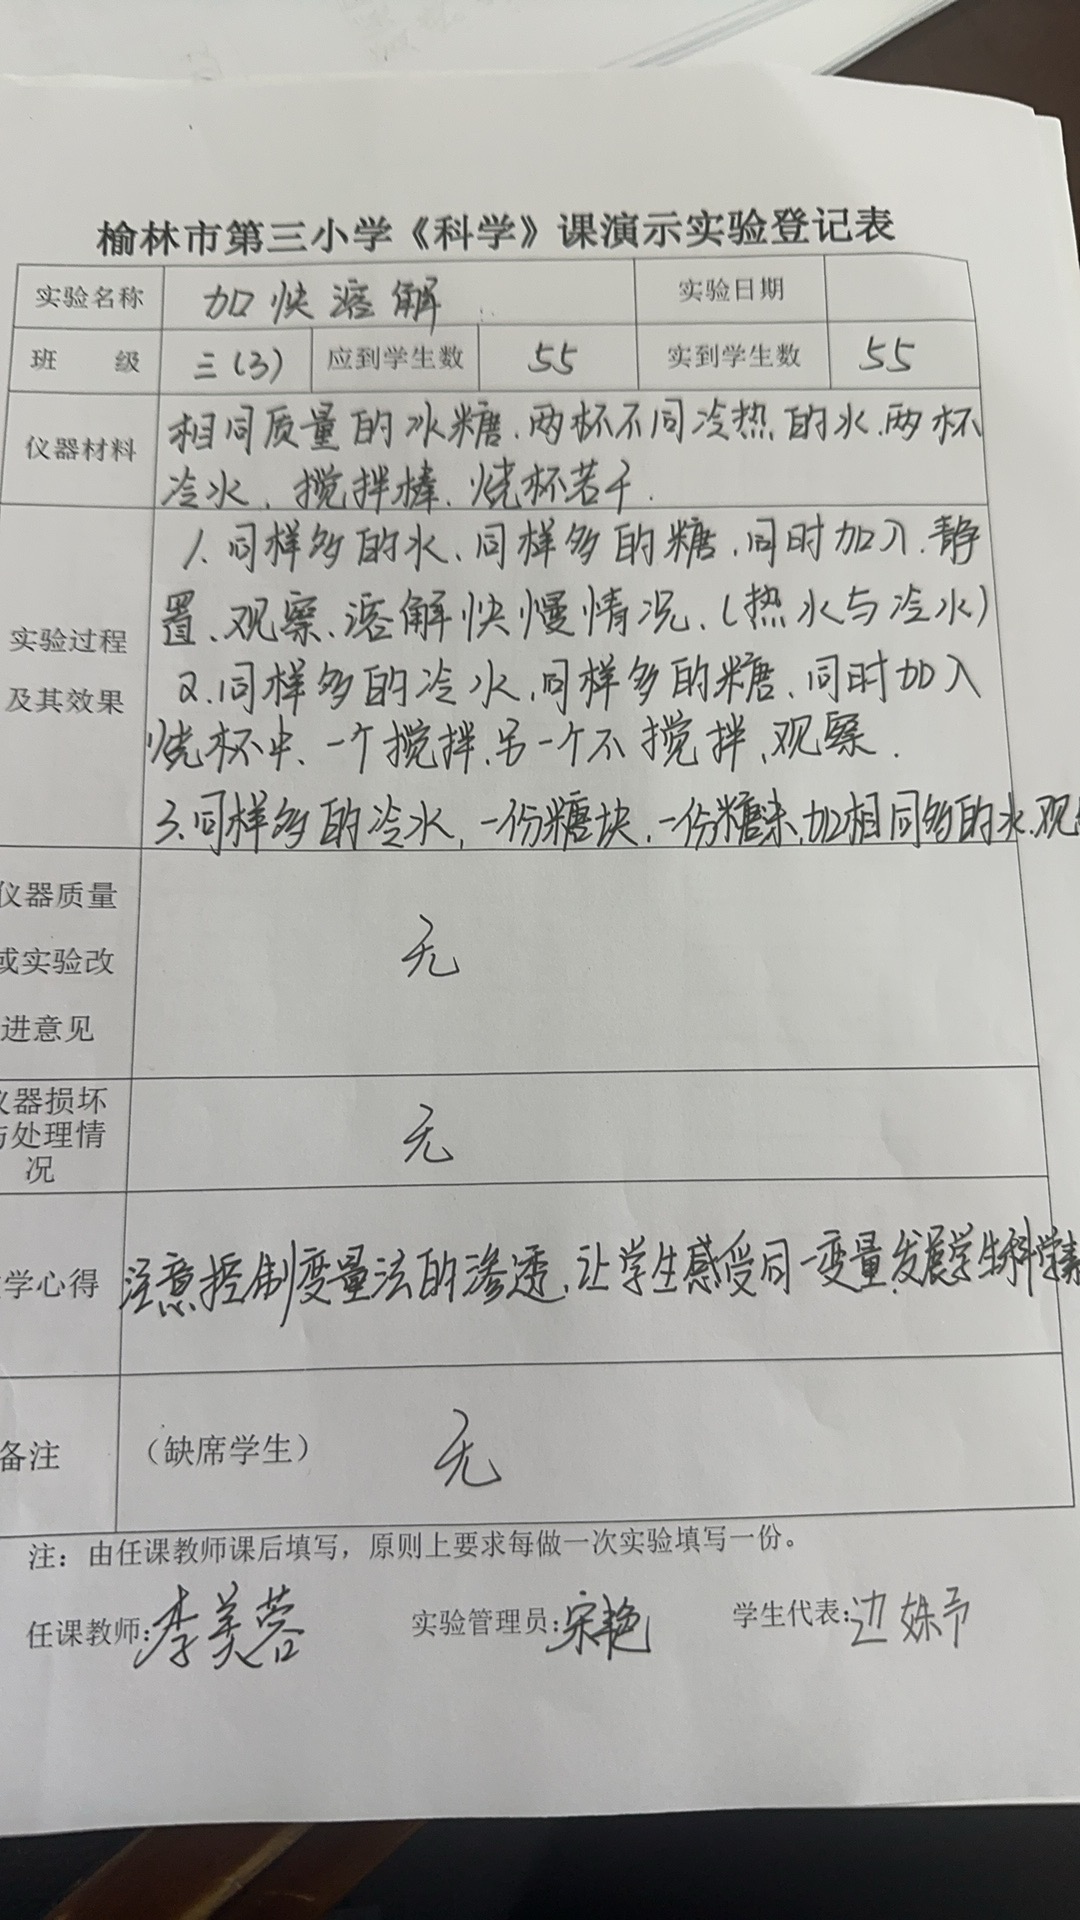 榆林市第三小学《科学》课演示实验登记表
实验名称 加快溶解 实验日期
班 级 三(3) 应到学生数 55 实到学生数 55
仪器材料
相同质量的冰糖、两杯不同冷热的水、两杯
冷水、搅拌棒、烧杯若干.
实验过程
及其效果
1、同样多的水、同样多的糖、同时加入、静
置、观察、溶解快慢情况、(热水与冷水)
2、同样多的冷水、同样多的糖、同时加入
烧杯中、一个搅拌、另一个不搅拌、观察.
3、同样多的冷水,一份糖块,一份糖末,加相同多的水、观
仪器质量
或实验改
进意见
无
仪器损坏
与处理情
况
无
学心得 注意控制变量法的渗透,让学生感受同一变量,发展学生科学素
备注 (缺席学生) 无
注:由任课教师课后填写,原则上要求每做一次实验填写一份。
任课教师:李美蓉 实验管理员:宋艳 学生代表:边姝予